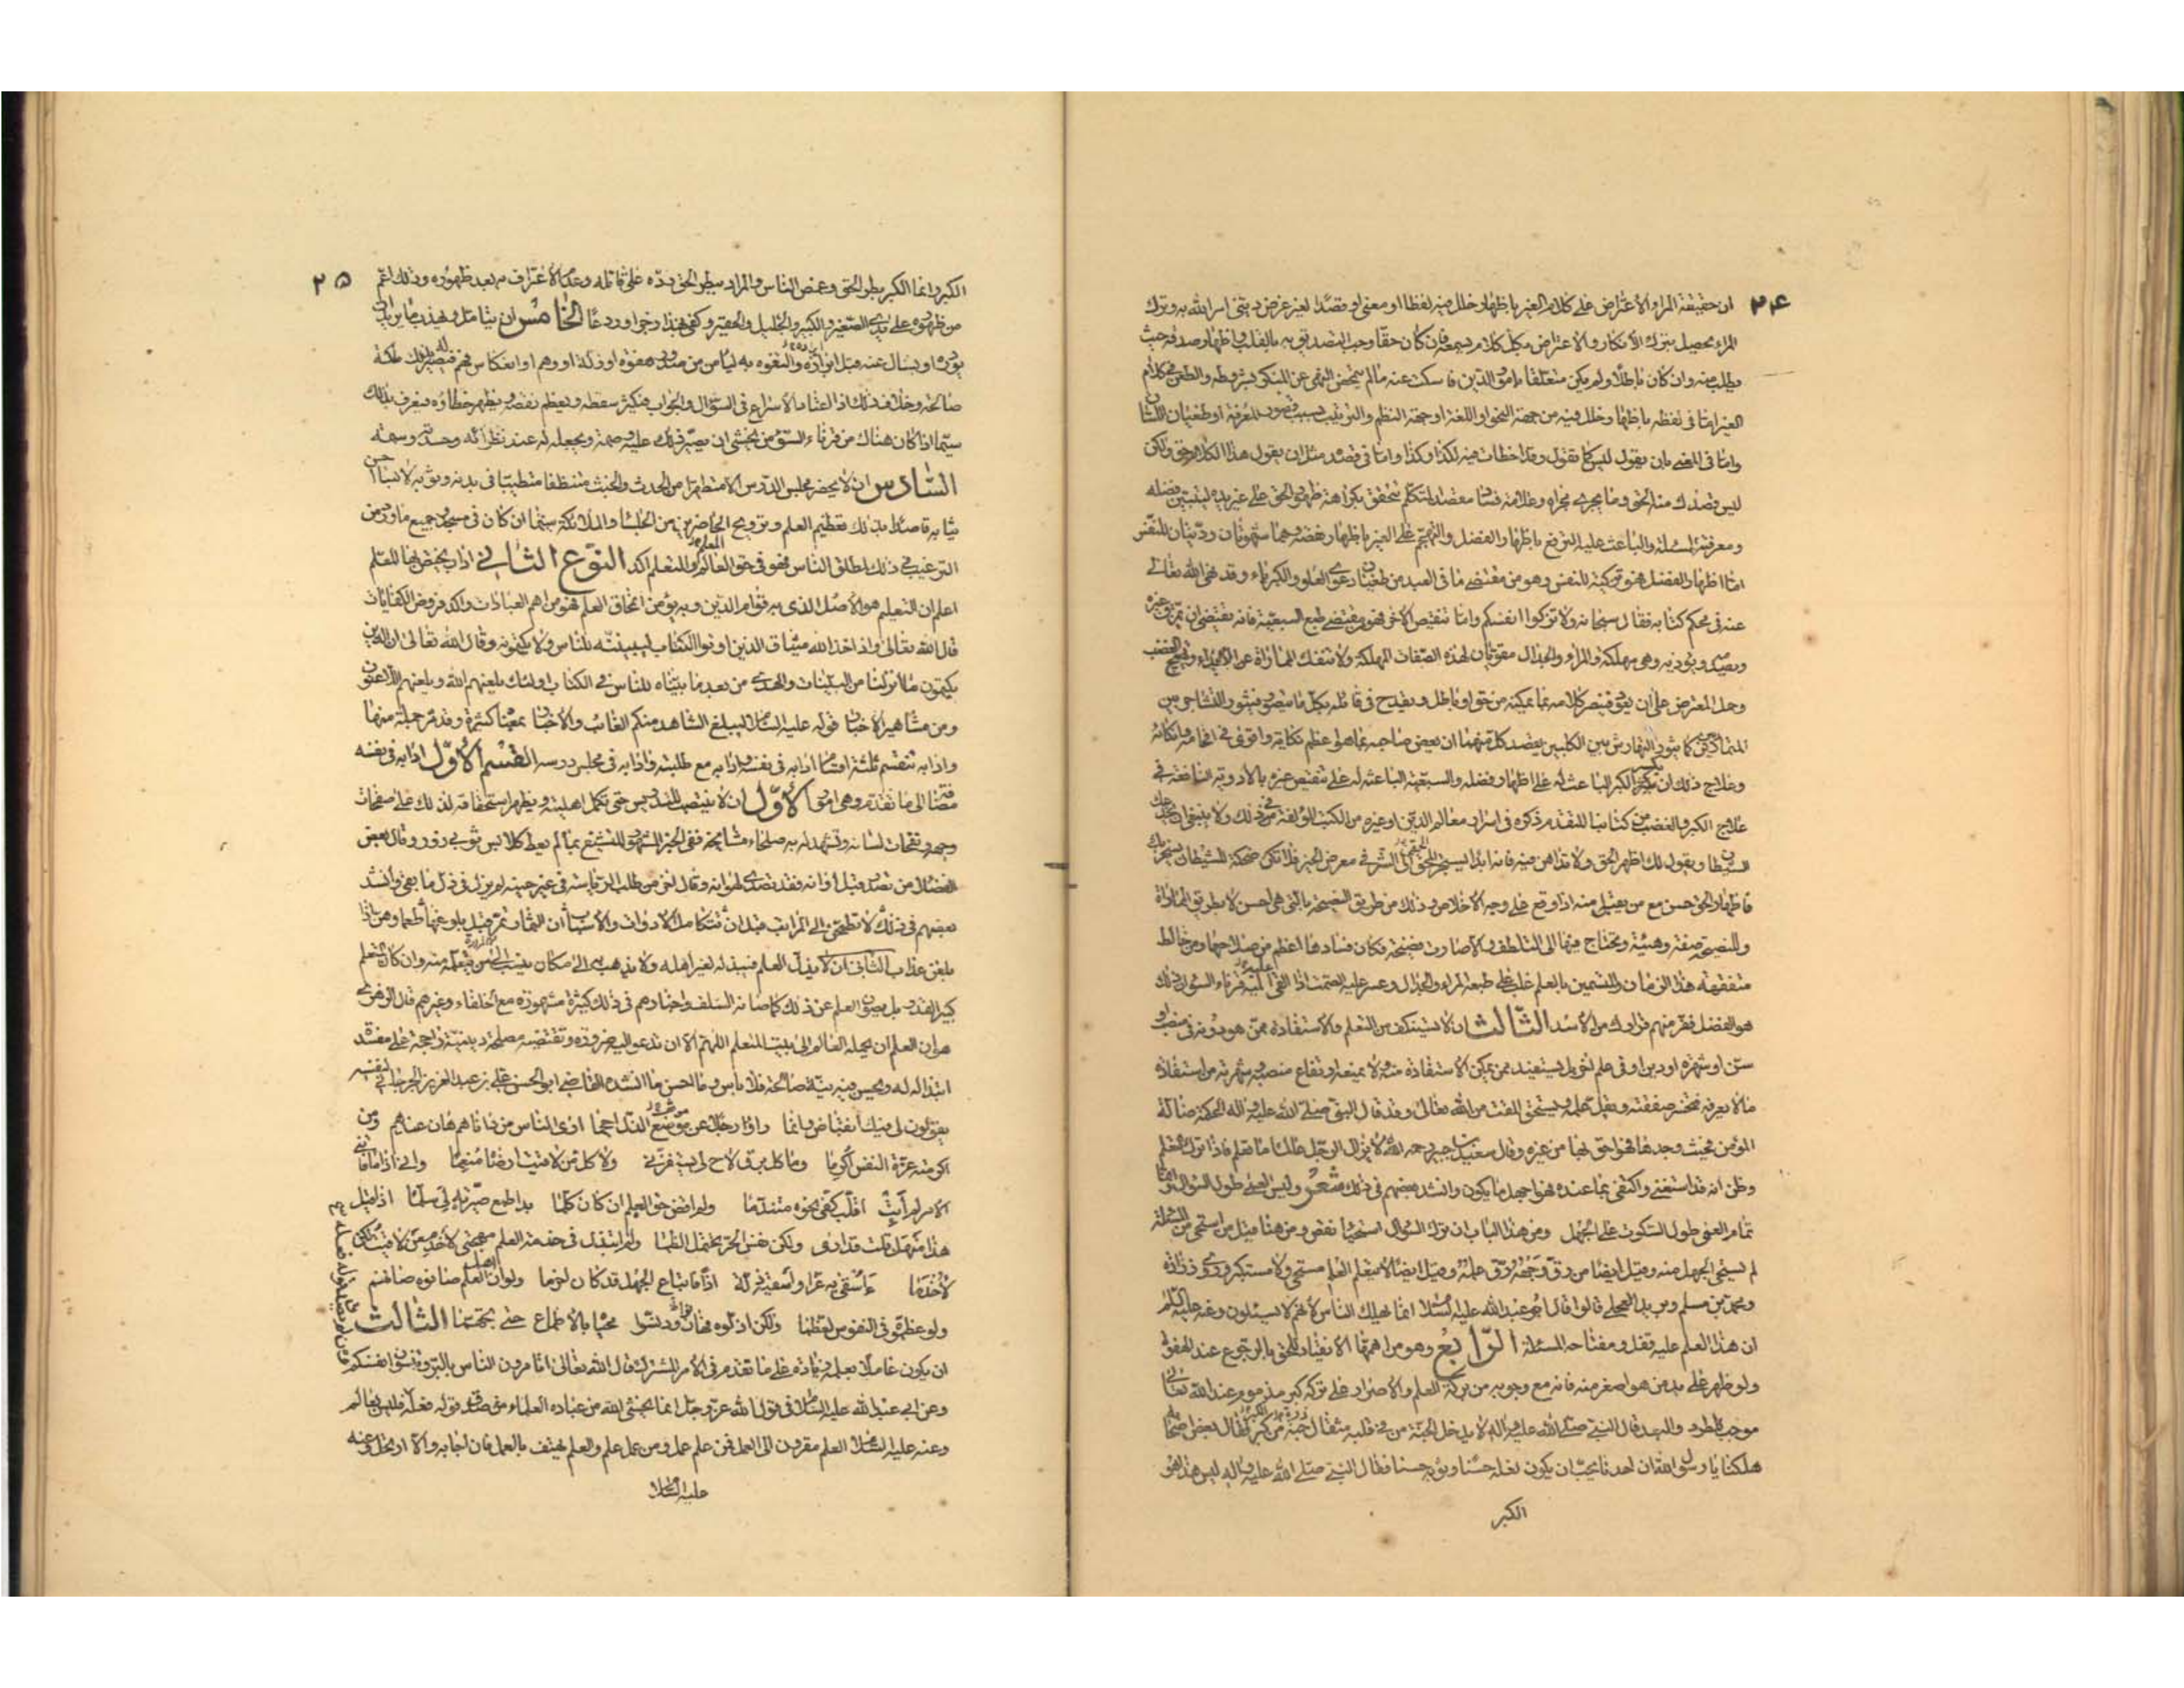 ۲۴
ان حقيقة المراء الاعتراض على كلام الغير باظهار خلل فيه لفظا او معنى او قصدا لغير غرض دينى امر الله به وترك
المراء يحصل بترك الانكار والاعتراض بكل كلام يسمعه فان كان حقا وجب التصديق به بالقلب واظهار صدقه حيث
يطلب منه وان كان باطلا ولم يكن متعلقا بامور الدين فاسكت عنه مالم يتمحض النهى عن المنكر بشروطه والطعن فى كلام
الغير اما فى لفظه باظهار خلل فيه من جهة النحو او اللغة او جهة النظم والترتيب بسبب قصور المعرفة او طغيان اللسان
واما فى المعنى بان يقول ليس كما تقول وقد اخطات فيه لكذا وكذا واما فى قصده مثل ان يقول هذا الكلام حق ولكن
ليس قصدك منه الحق وما يجرى مجراه وعلامة فساد مقصد المتكلم تتحقق بكراهة ظهور الحق على غير يده ليتبين فضله
ومعرفته للمسئلة والباعث عليه الترفع باظهار الفضل والتهجم على الغير باظهار نقصه وهما شهوتان رديتان للنفس
اما اظهار الفضل فهو تزكية للنفس وهو من مقتضى ما فى العبد من طغيان دعوى العلو والكبرياء وقد نهى الله تعالى
عنه فى محكم كتابه فقال سبحانه ولا تزكوا انفسكم واما تنقيص الاخر فهو مقتضى طبع السبعية فانه يقتضى ان يمزق غيره
ويصدمه ويؤذيه وهى مهلكة والمراء والجدال مقويان لهذه الصفات المهلكة ولا تنفك المماراة عن الايذاء وتهييج الغضب
وحمل المعترض على ان يعود فينصر كلامه بما يمكنه من حق او باطل ويقدح فى قائله بكل ما يتصور فيثور التشاجر بين
المتماريين كما يثور التهارش بين الكلبين يقصد كل منهما ان يعض صاحبه بما هو اعظم نكاية واقوى فى افحامه وانكائه
وعلاج ذلك ان يكسر الكبر الباعث له على اظهار فضله والسبعية الباعثة له على تنقيص غيره بالادوية النافعة فى
علاج الكبر والغضب من كتابنا المتقدم ذكره فى اسرار معالم الدين او غيره من الكتب المؤلفة فى ذلك ولا ينبغى ان يخدعك
الشيطان ويقول لك اظهر الحق ولا تداهن فيه فانه ابدا يستجر الحمقى الى الشر فى معرض الخير فلا تكن ضحكة للشيطان يسخر بك
فاظهار الحق حسن مع من يقبل منه اذا وقع على وجه الاخلاص وذلك من طريق النصيحة بالتى هى احسن لا بطريق المماراة
وللنصيحة صفة وهيئة ويحتاج فيها الى التلطف والا صارت فضيحة فكان فسادها اعظم من صلاحها ومن خالط
متفقهة هذا الزمان والمتسمين بالعلم غلب على طبعه المراء والجدال وعسر عليه الصمت اذا القى عليه قرناء السوء ان ذلك
هو الفضل ففر منهم فرارك من الاسد الثالث ان لا يستنكف من التعلم والاستفادة ممن هو دونه فى منصب او
سن او شهرة او دين او فى علم اخر بل يستفيد ممن يمكن الاستفادة منه ولا يمنعه ارتفاع منصبه وشهرته من استفادة
ما لا يعرفه فتخسر صفقته ويقل علمه ويستحق المقت من الله تعالى وقد قال النبى صلى الله عليه واله الحكمة ضالة
المؤمن فحيث وجدها فهو احق بها من غيره وقال سعيد بن جبير رحمه الله لا يزال الرجل عالما ما تعلم فاذا ترك التعلم
وظن انه قد استغنى واكتفى بما عنده فهو اجهل ما يكون وانشد بعضهم فى ذلك شعر وليس العمى طول السؤال وانما
تمام العمى طول السكوت على الجهل ومن هذا الباب ان يترك السؤال استحياء نقص ومن هنا قيل من استحى من المسئلة
لم يستحى الجهل منه وقيل ايضا من رق وجهه رق علمه وقيل ايضا لا يتعلم العلم مستحى ولا مستكبر وروى زرارة
ومحمد بن مسلم وبريد العجلى قالوا قال ابو عبد الله عليه السلام انما يهلك الناس لانهم لا يسئلون وعنه عليه السلام
ان هذا العلم عليه قفل ومفتاحه المسئلة الرابع وهو من اهمها الانقياد للحق بالرجوع عند الهفوة
ولو ظهر على يد من هو اصغر منه فانه مع وجوبه من بركة العلم والاصرار على تركه كبر مذموم عند الله تعالى
موجب للطرد والبعد قال النبى صلى الله عليه واله لا يدخل الجنة من فى قلبه مثقال حبة من كبر فقال بعض اصحابه
هلكنا يا رسول الله ان احدنا يحب ان يكون نعله حسنا وثوبه حسنا فقال النبى صلى الله عليه واله ليس هذا
الكبر
۲۵
الكبر وانما الكبر بطر الحق وغمص الناس والمراد ببطر الحق رده على قائله وعدم الاعتراف به بعد ظهوره وذلك اعم
من ظهوره على يدى الصغير والكبير والجليل والحقير وكفى بهذا زجرا وردعا الخامس ان يتامل ويهذب ما يريد ان
يورده او يسال عنه قبل ابرازه والتفوه به ليامن من صدور هفوة او زلة او وهم او انعكاس فهم فيصير له بذلك ملكة
صالحة وخلاف ذلك اذا اعتاد الاسراع فى السؤال والجواب فيكثر سقطه ويعظم نقصه ويظهر خطاؤه فيعرف بذلك
سيما اذا كان هناك من قرناء السوء من يخشى ان يصير ذلك عليه وصمة ويجعله له عند نظرائه وحسدته وسمة
السادس ان لا يحضر مجلس الدرس الا متطهرا من الحدث والخبث متنظفا متطيبا فى بدنه وثوبه لابسا احسن
ثيابه قاصدا بذلك تعظيم العلم وترويح الحاضرين من الجلساء والملائكة سيما ان كان فى مسجد وجميع ما ورد من
الترغيب فى ذلك لمطلق الناس فهو فى حق العالم والمتعلم اكد النوع الثانى اداب يختص بها المعلم
اعلم ان التعليم هو الاصل الذى به قوام الدين وبه يؤمن انمحاق العلم فهو من اهم العبادات واكد فروض الكفايات
قال الله تعالى واذ اخذ الله ميثاق الذين اوتوا الكتاب لتبيننه للناس ولا تكتمونه وقال الله تعالى ان الذين
يكتمون ما انزلنا من البينات والهدى من بعد ما بيناه للناس فى الكتاب اولئك يلعنهم الله ويلعنهم اللاعنون
ومن مشاهير الاخبار قوله عليه السلام ليبلغ الشاهد منكم الغائب والاخبار بمعناه كثيرة وقد مر جملة منها
وادابه تنقسم ثلثة اقسام ادابه فى نفسه وادابه مع طلبته وادابه فى مجلس درسه القسم الاول ادابه فى نفسه
مضافا الى ما تقدم وهى امور الاول ان لا ينتصب للتدريس حتى تكمل اهليته ويظهر استحقاقه لذلك على صفحات
وجهه ونفحات لسانه وتشهد له به صلحاء مشايخه ففى الخبر المشهور المتشبع بما لم يعط كلابس ثوبى زور وقال بعض
الفضلاء من تصدر قبل اوانه فقد تصدى لهوانه وقال اخر من طلب الرياسة فى غير حينه لم يزل فى ذل ما بقى وانشد
بعضهم فى ذلك لا تطمحن الى المراتب قبل ان تتكامل الادوات والاسباب ان الثمار تمر قبل بلوغها طعما وهن اذا
بلغن عذاب الثانى ان لا يذل العلم فيبذله لغير اهله ولا يذهب به الى مكان ينسب الى من يتعلمه منه وان كان المتعلم
كبير القدر بل يصون العلم عن ذلك كما صانه السلف واخبارهم فى ذلك كثيرة مشهورة مع الخلفاء وغيرهم قال الزهرى
هوان العلم ان يحمله العالم الى بيت المتعلم اللهم الا ان تدعو اليه ضرورة وتقتضيه مصلحة دينية راجحة على مفسدة
ابتذاله له ويحسن فيه نية صالحة فلا باس وما احسن ما انشده القاضى ابو الحسن على بن عبد العزيز الجرجانى لنفسه
يقولون لى فيك انقباض وانما راوا رجلا عن موضع الذل احجما ارى الناس من داناهم هان عندهم ومن
اكرمته عزة النفس اكرما وما كل برق لاح لى يستفزنى ولا كل من لاقيت ارضاه منعما وانى اذا ما فاتنى
الامر لم ابت اقلب كفى نحوه متندما ولم اقض حق العلم ان كان كلما بدا طمع صيرته لى سلما اذا قيل
هذا منهل قلت قد ارى ولكن نفس الحر تحتمل الظما ولم ابتذل فى خدمة العلم مهجتى لاخدم من لاقيت لكن
لاخدما ءاشقى به غرسا واسقيه ذلة اذا فاتباع الجهل قد كان احزما ولو ان اهل العلم صانوه صانهم
ولو عظموه فى النفوس لعظما ولكن اذلوه فهان ودنسوا محياه بالاطماع حتى تجهما الثالث
ان يكون عاملا بعلمه زيادة على ما تقدم فى الامر المشترك قال الله تعالى اتامرون الناس بالبر وتنسون انفسكم
وعن ابى عبد الله عليه السلام فى قول الله عز وجل انما يخشى الله من عباده العلماء من صدق قوله فعله فليس بعالم
وعنه عليه السلام العلم مقرون الى العمل فمن علم عمل ومن عمل علم والعلم يهتف بالعمل فان اجابه والا ارتحل وعنه
عليه السلام